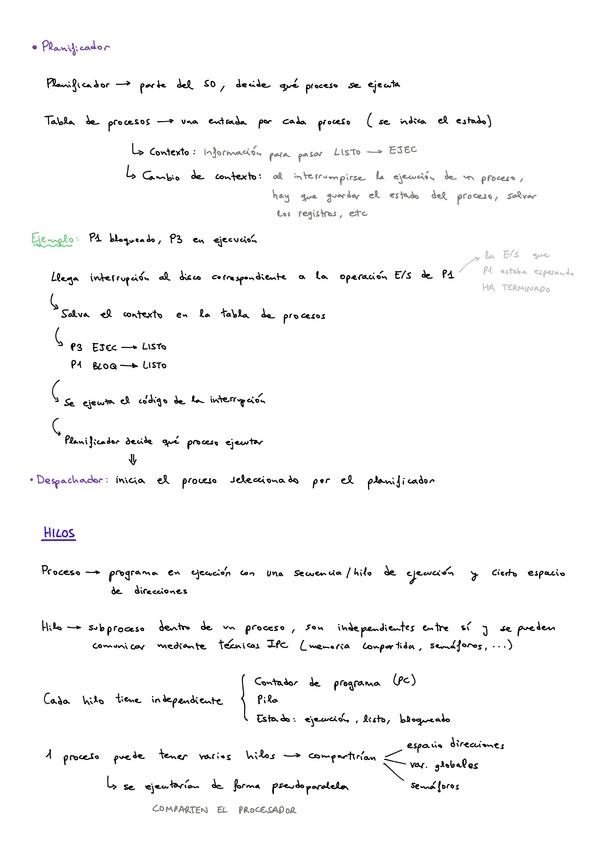 • Planificador
Planificador → parte del SO, decide qué proceso se ejecuta
Tabla de procesos → una entrada por cada proceso (se indica el estado)
↳ Contexto: Información para pasar LISTO → EJEC
↳ Cambio de contexto: al interrumpirse la ejecución de un proceso,
hay que guardar el estado del proceso, salvar
los registros, etc
Ejemplo: P1 bloqueado, P3 en ejecución
Llega interrupción al disco correspondiente a la operación E/S de P1
la E/S que
P1 estaba esperando
HA TERMINADO
Salva el contexto en la tabla de procesos
P3 EJEC → LISTO
P1 BLOQ → LISTO
Se ejecuta el código de la interrupción
Planificador decide qué proceso ejecutar
⇓
• Despachador: inicia el proceso seleccionado por el planificador
HILOS
Proceso → programa en ejecución con una secuencia/hilo de ejecución y cierto espacio
de direcciones
Hilo → subproceso dentro de un proceso, son independientes entre sí y se pueden
comunicar mediante técnicas IPC (memoria compartida, semáforos, ...)
Cada hilo tiene independiente
Contador de programa (PC)
Pila
Estado: ejecución, listo, bloqueado
1 proceso puede tener varios hilos → compartirían
espacio direcciones
var. globales
semáforos
↳ se ejecutarían de forma pseudoparalela
COMPARTEN EL PROCESADOR